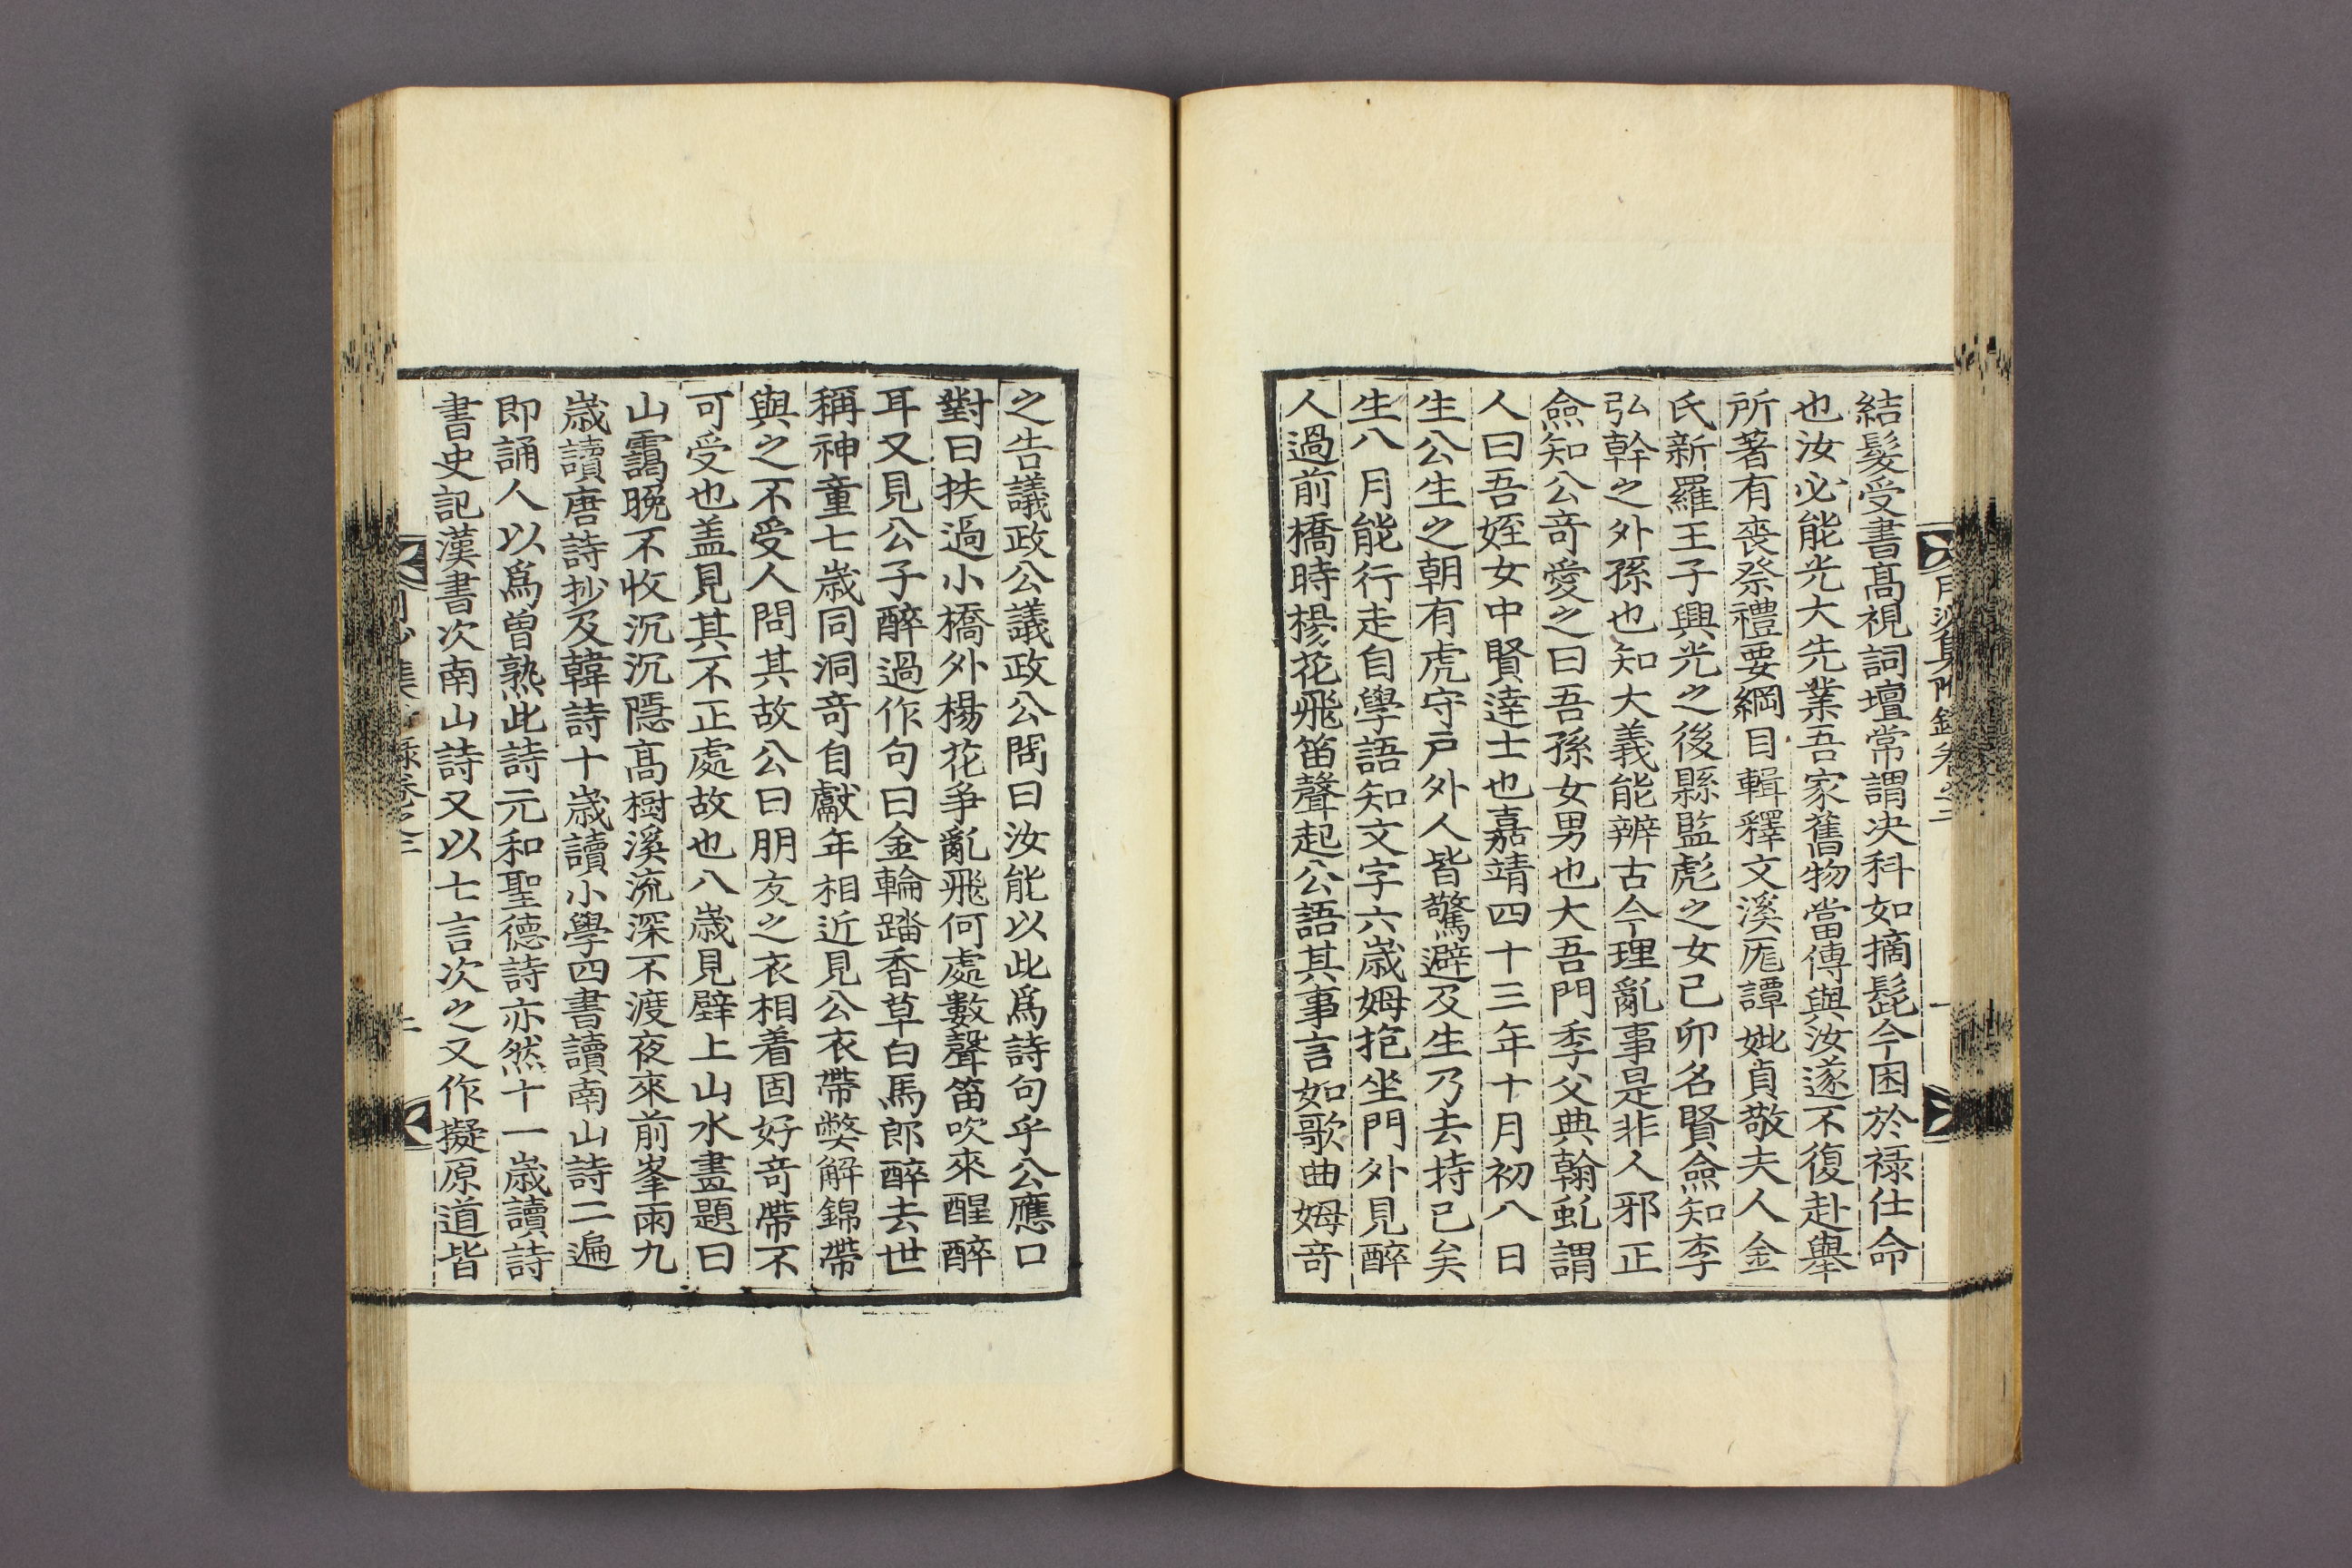 月沙集附錄卷之三
一
結髮受書高視詞壇常謂決科如摘髭今困於祿仕命
也汝必能光大先業吾家舊物當傳與汝遂不復赴擧
所著有喪祭禮要綱目輯釋文溪巵譚妣貞敬夫人金
氏新羅王子興光之後縣監彪之女己卯名賢僉知李
弘幹之外孫也知大義能辨古今理亂事是非人邪正
僉知公奇愛之曰吾孫女男也大吾門季父典翰虬謂
人曰吾姪女中賢達士也嘉靖四十三年十月初八日
生公生之朝有虎守戶外人皆驚避及生乃去持已矣
生八月能行走自學語知文字六歲姆抱坐門外見醉
人過前橋時楊花飛笛聲起公語其事言如歌曲姆奇
之告議政公議政公問曰汝能以此爲詩句乎公應口
對曰扶過小橋外楊花爭亂飛何處數聲笛吹來醒醉
耳又見公子醉過作句曰金輪踏香草白馬郎醉去世
稱神童七歲同洞奇自獻年相近見公衣帶獘解錦帶
與之不受人問其故公曰朋友之衣相着固好奇帶不
可受也盖見其不正處故也八歲見壁上山水畫題曰
山靄晚不收沉沉隱高樹溪流深不渡夜來前峯雨九
歲讀唐詩抄及韓詩十歲讀小學四書讀南山詩二遍
即誦人以爲曾熟此詩元和聖德詩亦然十一歲讀詩
書史記漢書次南山詩又以七言次之又作擬原道皆
二